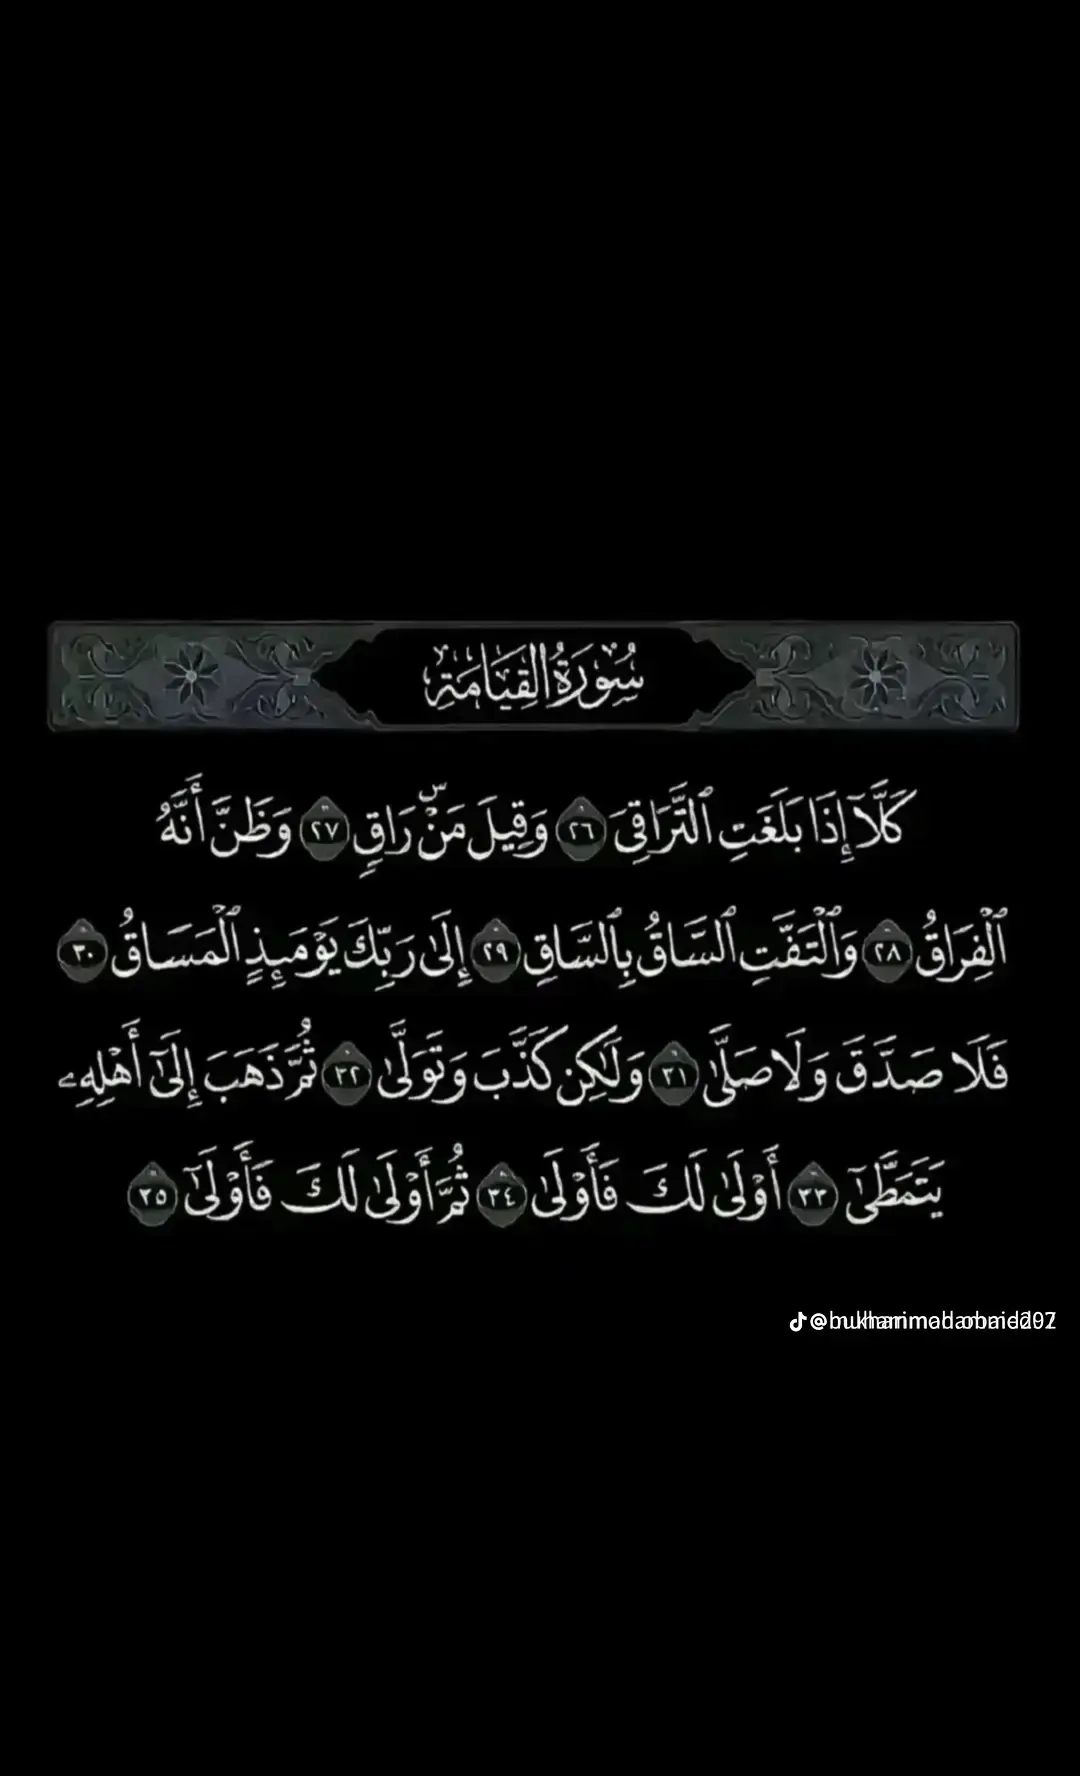 سُورَةُ القِيَامَةِ
كَلَّآ إِذَا بَلَغَتِ ٱلتَّرَاقِىَ ٢٦ وَقِيلَ مَنْۜ رَاقٍ ٢٧ وَظَنَّ أَنَّهُ
ٱلْفِرَاقُ ٢٨ وَٱلْتَفَّتِ ٱلسَّاقُ بِٱلسَّاقِ ٢٩ إِلَىٰ رَبِّكَ يَوْمَئِذٍ ٱلْمَسَاقُ ٣٠
فَلَا صَدَّقَ وَلَا صَلَّىٰ ٣١ وَلَٰكِن كَذَّبَ وَتَوَلَّىٰ ٣٢ ثُمَّ ذَهَبَ إِلَىٰٓ أَهْلِهِۦ
يَتَمَطَّىٰٓ ٣٣ أَوْلَىٰ لَكَ فَأَوْلَىٰ ٣٤ ثُمَّ أَوْلَىٰ لَكَ فَأَوْلَىٰٓ ٣٥